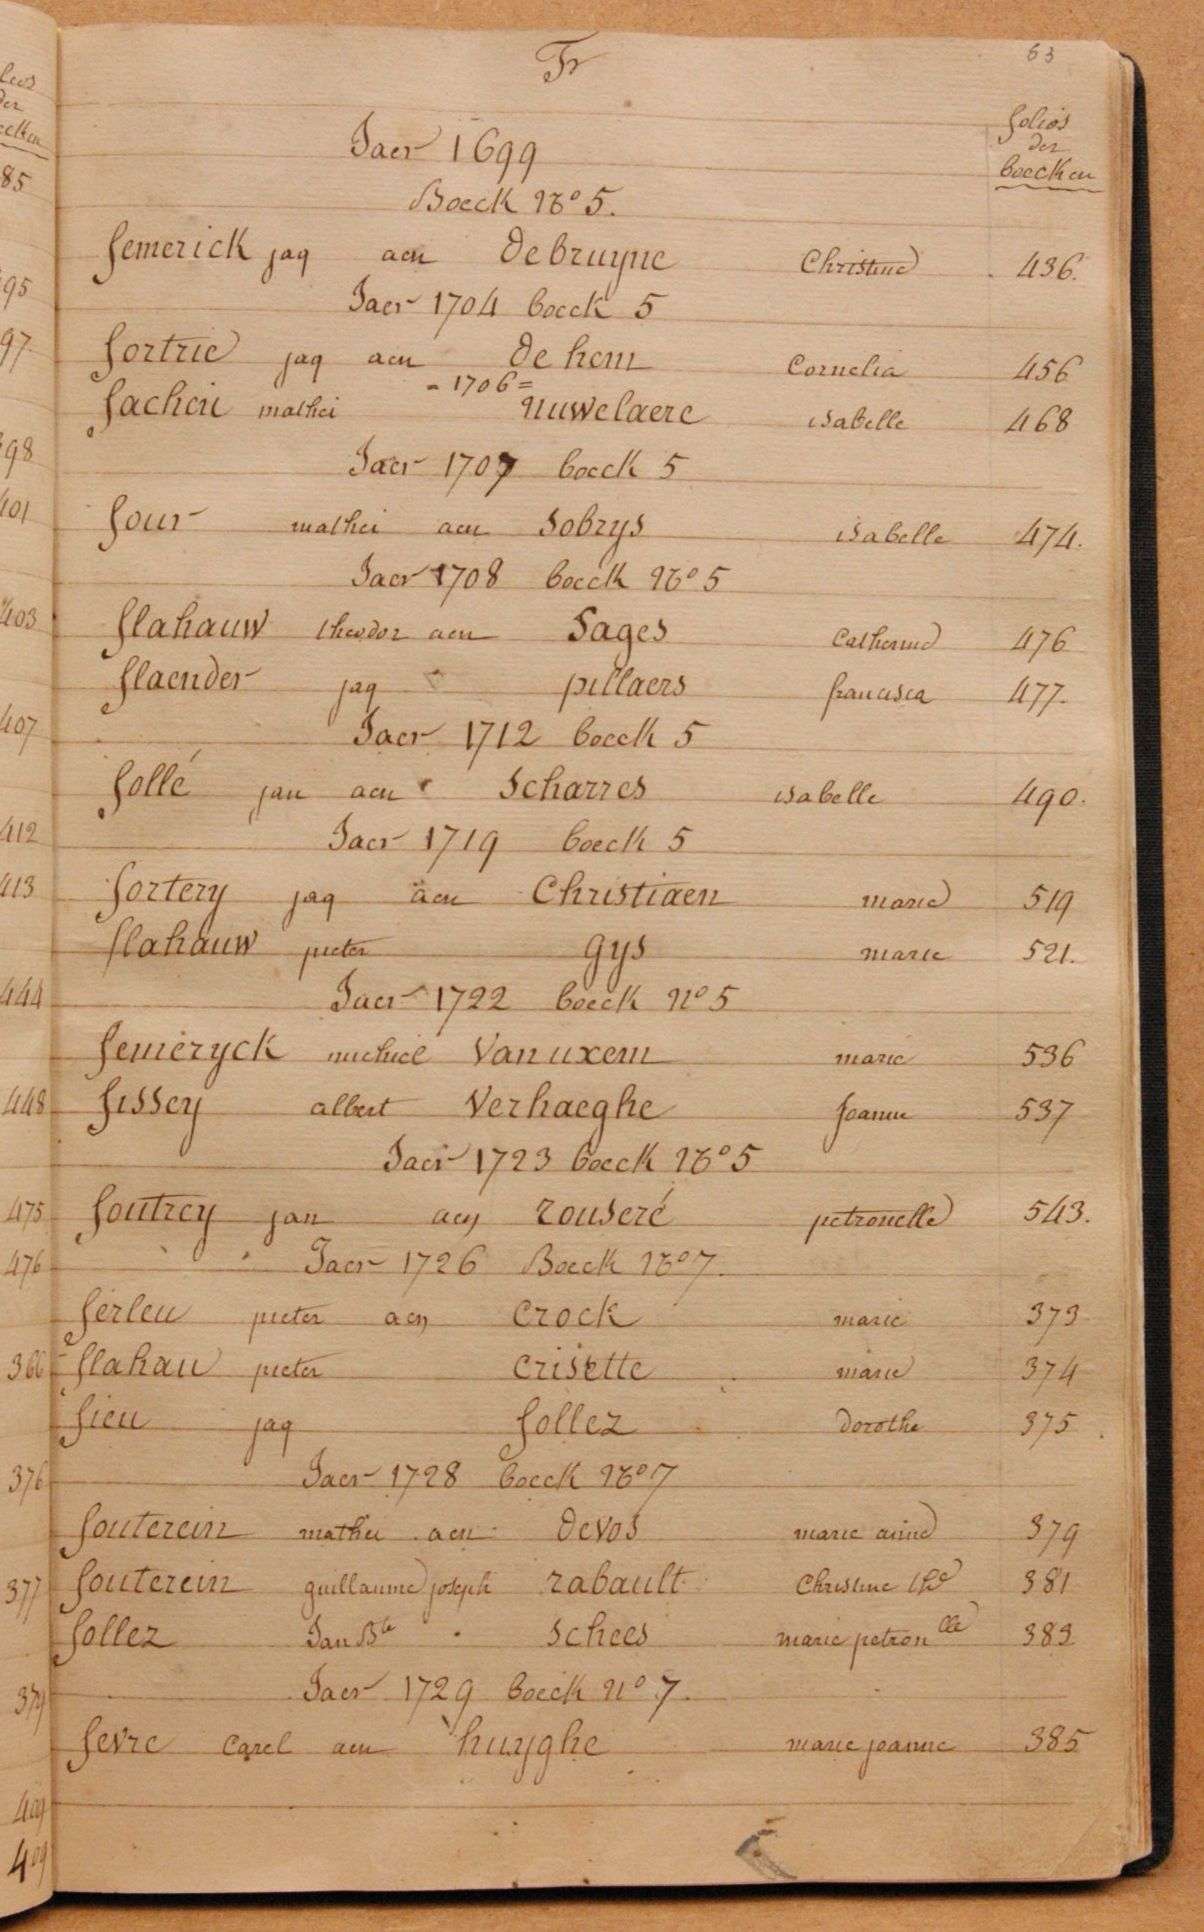 63
Fr
folios
der
boecken
Jaer 1699
Boeck No 5.
femerick jaq aen De bruyne Christine 436.
Jaer 1704 boeck 5
fortrie jaq aen De hem Cornelia 456
= 1706 =
facheu mathei Nuwelaere isabelle 468
Jaer 1707 boeck 5
four mathei aen Sobrys isabelle 474.
Jaer 1708 boeck No 5
flahauw theodor aen Sages Catherine 476
flaender jaq pillaers francisca 477.
Jaer 1712 boeck 5
follé jan aen Scharres isabelle 490.
Jaer 1719 boeck 5
fortery jaq aen Christiaen marie 519
flahauw pieter Gys marie 521.
Jaer 1722 boeck No 5
femeryck michiel Van uxem marie 536
fissey albert Verhaeghe joanne 537
Jaer 1723 boeck No 5
foutrey jan aen rouseré petronelle 543.
Jaer 1726 Boeck No 7.
ferleu pieter aen Crock marie 373
flahau pieter Crisette marie 374
fieu jaq follez dorothe 375
Jaer 1728 boeck No 7
fouterein mathei aen Devos marie anne 379
fouterein guillaume joseph rabault Christine 381
follez Jan Bte Schees marie petronlle 383
Jaer 1729 boeck No 7.
fevre Carel aen huyghe marie joanne 385
der
85
95
97
98
401
403
407
412
413
444
448
475
476
366
376
377
379
409
409